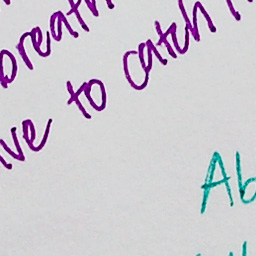 breath
ve to catch
Ab